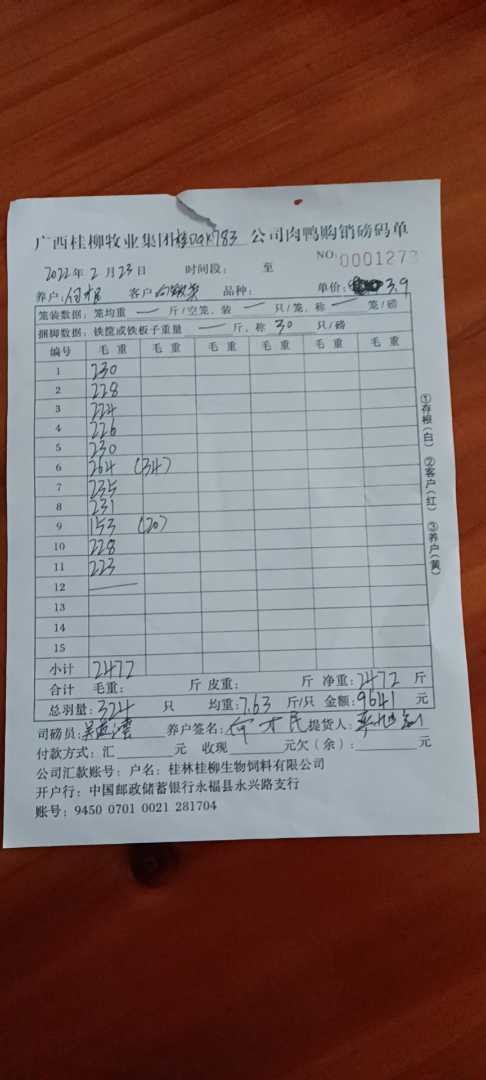 广西桂柳牧业集团桂DGK783公司肉鸭购销磅码单
NO: 0001273
2022年2月23日 时间段: 至
养户: 客户 品种: 单价: 3.9
笼装数据: 笼均重 — 斤/空笼、装 — 只/笼, 称 — 笼/磅
捆脚数据: 铁筐或铁板子重量 — 斤, 称 30 只/磅
编号 毛重 毛重 毛重 毛重 毛重 毛重
1 230
2 228
3 224
4 226
5 230
6 264 (34)
7 235
8 231
9 153 (20)
10 228
11 223
12 —
13
14
15
小计 2472
合计 毛重: 斤 皮重: 斤 净重: 2472 斤
总羽量: 324 只 均重: 7.63 斤/只 金额: 9641 元
司磅员: 养户签名: 何才民 提货人:
付款方式: 汇 元 收现 元欠(余): 元
公司汇款账号: 户名: 桂林桂柳生物饲料有限公司
开户行: 中国邮政储蓄银行永福县永兴路支行
账号: 9450 0701 0021 281704
①存根(白) ②客户(红) ③养户(黄)